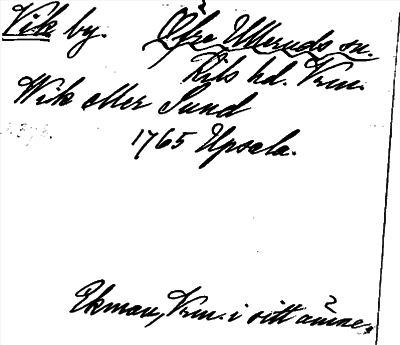 Vik by. Övre Ulleruds sn.
Kils hd. Vrm.
Wik eller Sund
1765 Upsala.
Ekman, Vrm. i sitt ämne,